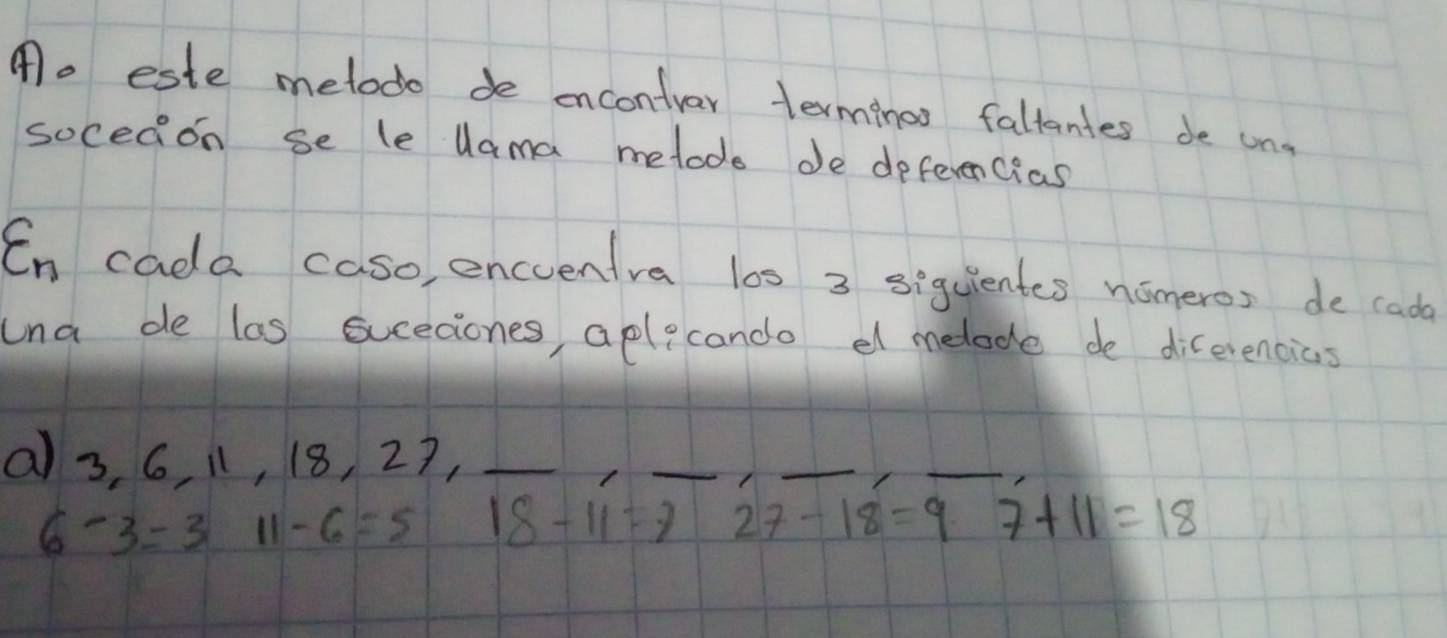 A. este metodo de encontrar terminos faltantes de una
soceción se le llama metodo de deferencias
En cada caso, encuentra los 3 siguientes números de cada
una de las suceciones, aplicando el metodo de diferencias
a) 3, 6, 11, 18, 27, __, __, __, __,
6-3=3 11-6=5 18-11=7 27-18=9 7+11=18